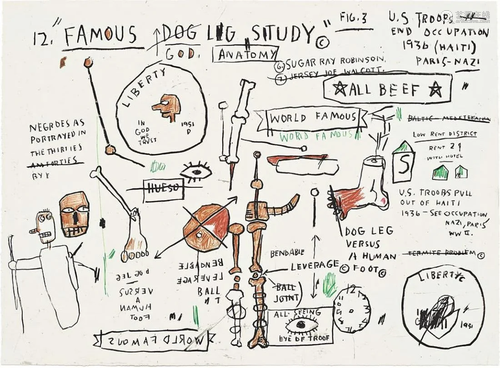 12. "FAMOUS DOG LEG STUDY" ©
FIG. 3
U.S TROOPS
END OCCUPATION
1936 (HAITI)
PARIS-NAZI
GOD. ANATOMY
SUGAR RAY ROBINSON.
JERSEY JOE WALCOTT.
☆ALL BEEF☆
LIBERTY
IN
GOD
WE
TRUST
1951
D
WORLD FAMOUS
WORLD FAMOUS
BALTIC - MEDITERRANEAN
LOW RENT DISTRICT
RENT 2$
WITH HOTEL
S
NEGROES AS
PORTRAYED IN
THE THIRTIES
HUESO
U.S. TROOPS PULL
OUT OF HAITI
1936 - SEE OCCUPATION
NAZI, PARIS
WW II.
TERMITE PROBLEM ©
DOG LEG
VERSUS
A HUMAN
© FOOT ©
BENDABLE
LEVERAGE
BALL
JOINT
ALL-SEEING
EYE OF TROOF
BENDABLE
LEVERAGE
BALL
DOG LEG
VERSUS
A HUMAN
FOOT
WORLD FAMOUS
12
LIBERTY
1951